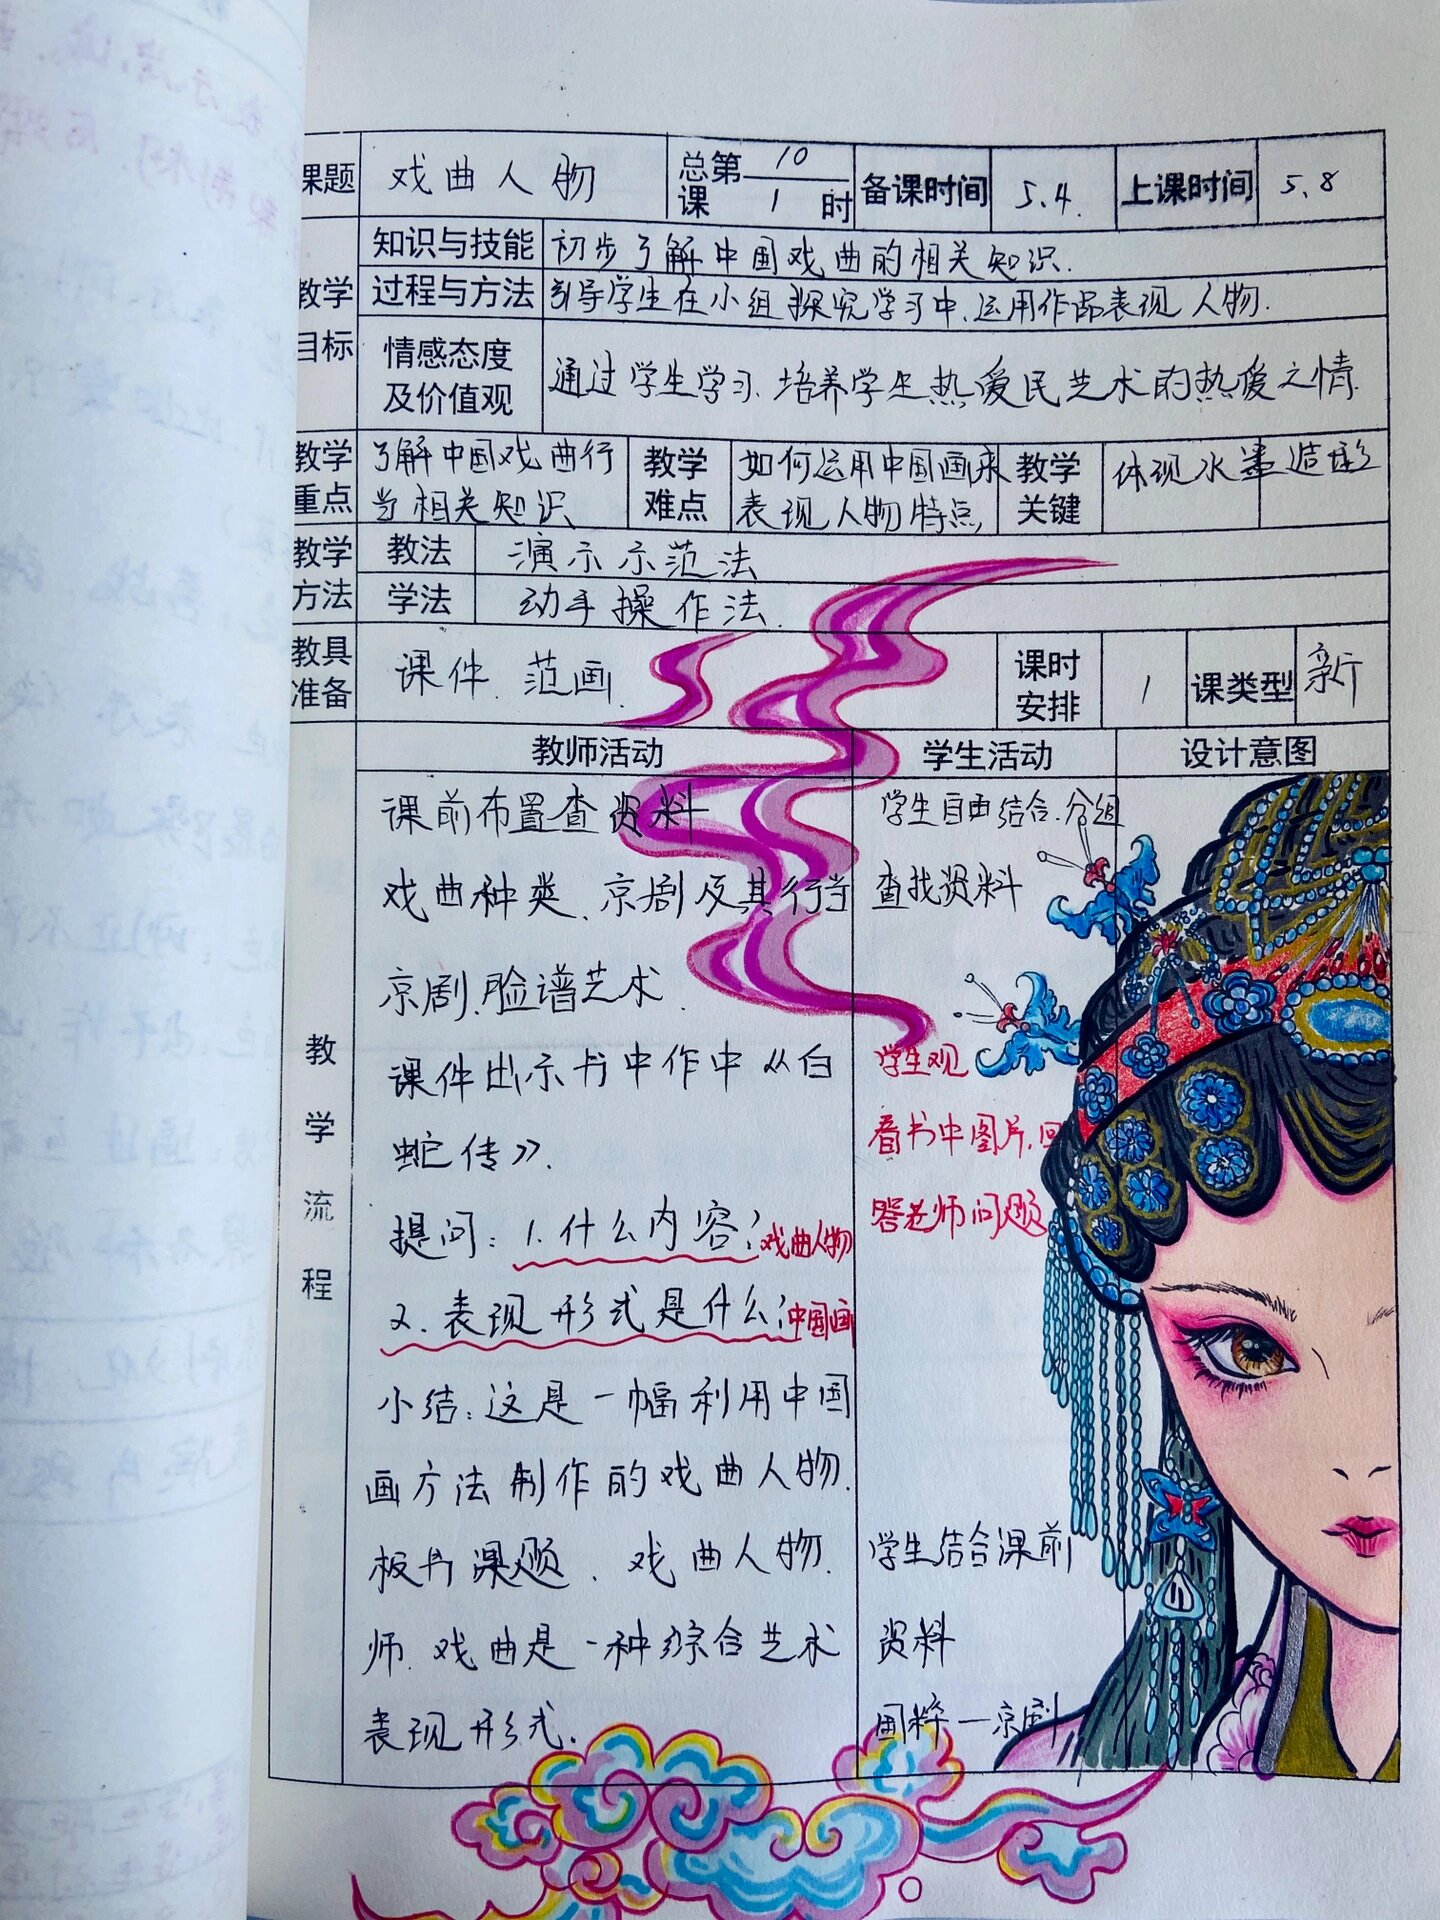 课题 戏曲人物 总第10课1时 备课时间 5.4. 上课时间 5.8
教学目标 知识与技能 初步了解中国戏曲的相关知识.
过程与方法 引导学生在小组探究学习中、运用作品表现人物.
情感态度及价值观 通过学生学习、培养学生热爱民艺术的热爱之情.
教学重点 了解中国戏曲行当相关知识 教学难点 如何运用中国画来表现人物特点 教学关键 体现水墨造型
教学方法 教法 演示示范法
学法 动手操作法.
教具准备 课件、范画. 课时安排 1 课类型 新
教学流程 教师活动 学生活动 设计意图
课前布置查资料 学生自由结合.分组
戏曲种类、京剧及其行当 查找资料
京剧.脸谱艺术.
课件出示书中作中《白 学生观
蛇传》. 看书中图片.回
提问：1.什么内容？戏曲人物 答老师问题
2.表现形式是什么？中国画
小结：这是一幅利用中国
画方法制作的戏曲人物.
板书课题、戏曲人物. 学生结合课前
师.戏曲是一种综合艺术 资料
表现形式. 国粹—京剧